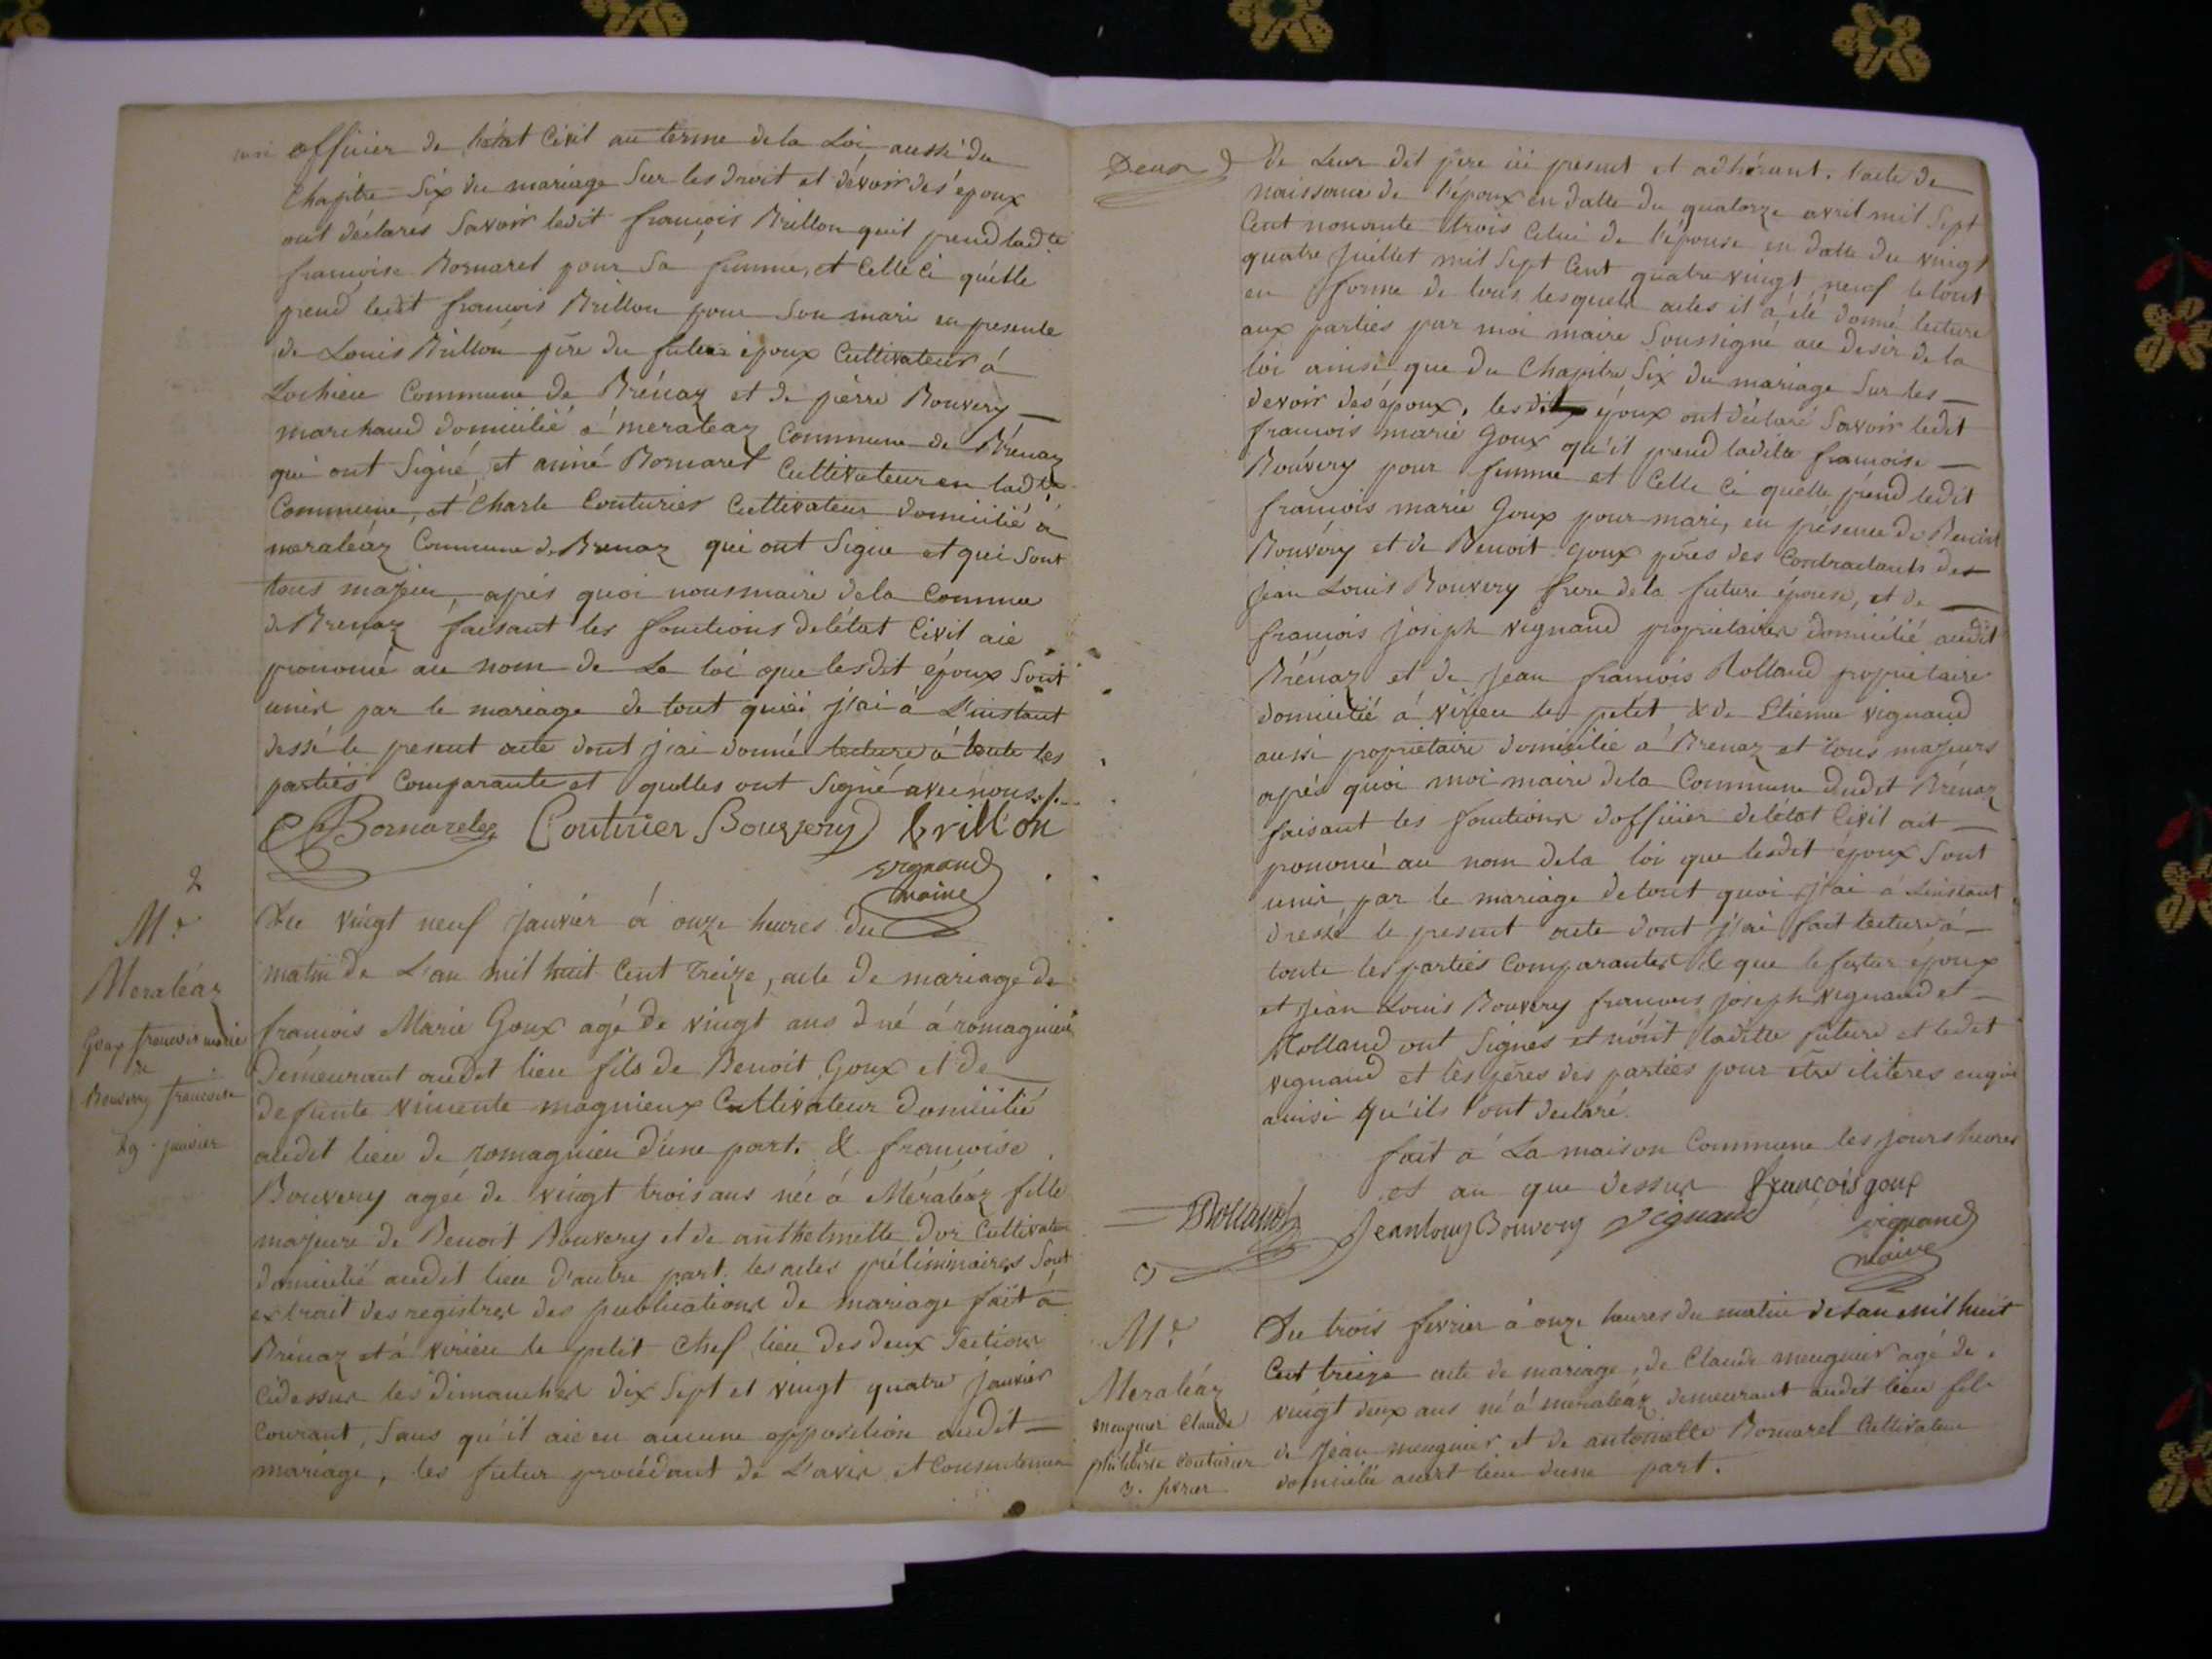 officier de l'état Civil au terme de la Loi, aussi du
Chapitre Six du mariage Sur les droit et dévoir des époux
ont déclarés Savoir ledit françois Brillon quil prend ladte
françoise Bornarel pour Sa femme, et Celle Ci quélle
prend ledit françois Brillon pour Son mari en presente
de Louis Brillon père du futur époux Cultivateur á
Lochieu Commune de Brénaz et de pièrre Bouvery —
marchand domicilié á meraleaz Commune de Brénaz
qui ont Signé, et aimé Bornarel Cultivateur en ladte
Commune, et Charle Couturier Cultivateur domicilié á
méraléaz Commune de Brenaz qui ont Signe et qui Sont
tous majeur, aprés quoi nous maire de la Commue
de Brenaz faisant les fonctions de létat Civil aie
prononcé au nom de La loi que lesdit époux Sont
unis par le mariage de tout quoi j'ai á L'instant
dessé le present acte dont j'ai donné lecture á toute les
partiés Comparante et quelles ont Signé avec nous./.
Bornarel Couturier Bouvery brillon
vignand
maire
2
Mr
Meraléaz
Goux francois marie
de
Bouvery francoise
29 janvier
Du vingt neuf janvier á onze heures du
matin de L'an mil huit Cent treize, acte de mariage de
francois Marie Goux agé de vingt ans d né á romagnieu
Démeurant audit lieu fils de Benoit Goux et de
defunte vincente magnieux Cultivateur domicilié
audit lieu de romagnieu d'une part. & francoise
Bouvery agée de vingt trois ans née á Méraléaz fille
majeure de Benoit Bouvery et de anthelmette Dor Cultivateur
domicilié audit lieu d'autre part. les actes préliminaires Sont
extrait des registres des publications de mariage fait á
Brénaz et á virieu le petit Chef lieu des deux Sections
Cidessus les dimanches dix Sept et vingt quatre janvier
Courant, Sans qu'il aie eu aucune opposition audit —
mariage, les futur procédant de L'avis et Consentement
Deux
de Leur dit père ici present et adhérant. l'acte de
naissance de l'époux en datte du quatorze avril mil Sept
Cent nonante trois Celui de l'épouse en datte du vingt
quatre Juillet mil Sept Cent quatre vingt neuf le tout
en forme de tous lesquels actes il á été donné lecture
aux parties par moi maire Soussigné au desir de la
loi ainsi que du Chapitre Six du mariage Sur les —
devoir des époux. lesdit époux ont déclaré Savoir ledit
francois marie Goux qu'il prend ladite francoise —
Bouvery pour femme et Celle Ci quelle prend ledit
francois marie Goux pour mari, en présence de Benoit
Bouvéry et de Benoit Goux péres des Contractants de
Jean Louis Bouvery frere de la future épouse, et de —
francois Joseph vignand proprietaire domicilié audit
Brénaz et de Jean francois Rolland propriétaire
domicilié á virieu le petit & de Etienne vignand
aussi propriétaire domicilié á Brenaz et tous majeurs
aprés quoi moi maire de la Commune dudit Brénaz
faisant les fonctions dofficier de létat Civil ait —
pononcé au nom de la loi que lesdit époux Sont
unis par le mariage de tout quoi j'ai á Linstant
dressé le present acte dont j'ai fait lecture á —
toute les parties Comparantes & que le futur époux
et Jean Louis Bouvery francois joseph vignand et —
Rolland ont Signés et nont ladite future et ledit
vignand et les péres des parties pour étre iliteres
ainsi qu'ils l'ont declaré.
fait á La maison Commune les jours heures
et an que dessus françois goux
Rolland Jean louy Bouvery vignand vignand
maire
3
Mr
Meraléaz
meugnier Claude
de
philiberte Couturier
3. fevrier
Du trois fevrier á onze heures du matin de Lan mil huit
Cent treize acte de mariage, de Claude meugnier agé de
vingt deux ans né á meraléaz demeurant audit lieu fils
de Jean meugnier et de antoinette Bornarel Cultivateur
domicilié audit lieu dune part.